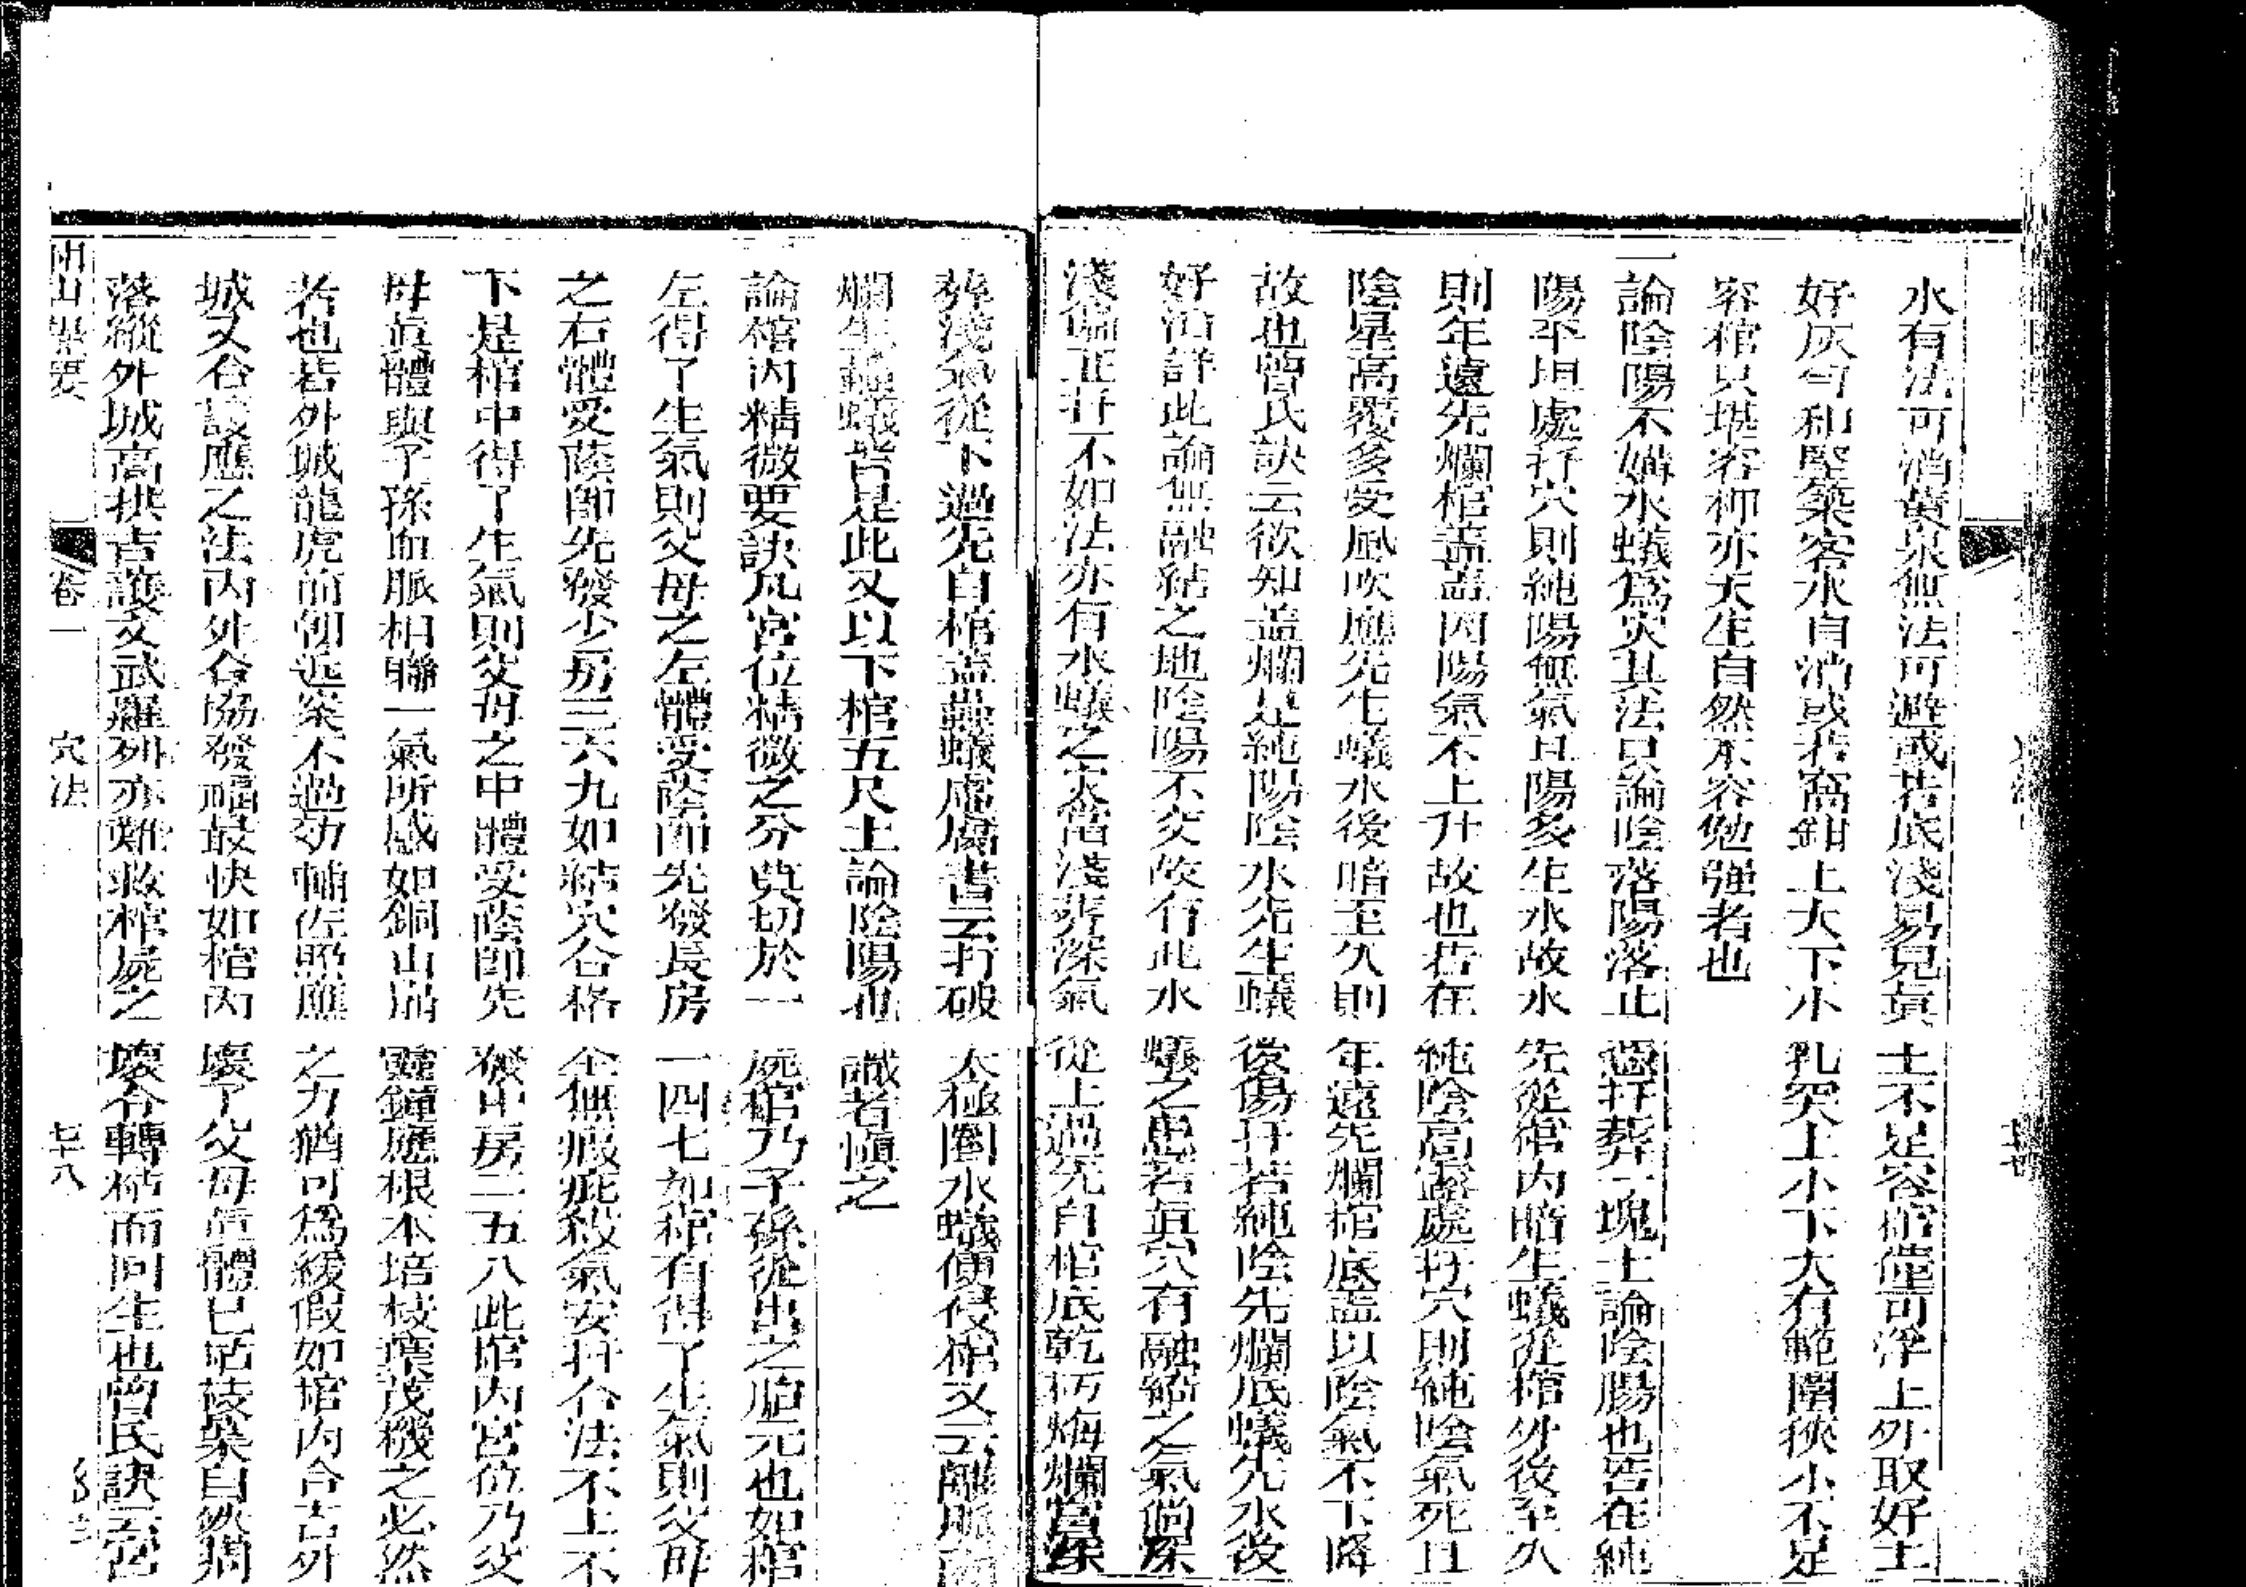 水有法可消黃泉無法可避或若底淺易見眞土不足容棺僅可浮上外取好土
好灰勻和堅築客水自消或若窩鉗上大下小乳突上小下大有範圍狹小不足
容棺只堪容柳亦天生自然不容勉強者也
一論陰陽不媾水蟻爲災其法只論陰落陽落止惡扦葬一塊土論陰陽也若在純
陽平坦處扦穴則純陽無氣且陽多生水故水先從棺內暗生蟻從棺外後至久
則年遠先爛棺蓋盖因陽氣不上升故也若在純陰高露處扦穴則純陰氣死且
陰星高覆多受風吹應先生蟻水後暗至久則年遠先爛棺底盖以陰氣不下降
故也曾氏訣云欲知盖爛是純陽陰水先生蟻後傷扦若純陰先爛底蟻先水後
好消詳此論無融結之地陰陽不交故有此水蟻之患若眞穴有融結之氣倘深
淺偏正扦不如法亦有水蟻之災當淺葬深氣從上過先自棺底乾朽悔爛當深
葬淺氣從下過先自棺盖蟲蟻虛腐書云打破太極圈水蟻便侵棺又云離脈
爛生蟲蟻皆是此又以下棺五尺土論陰陽也識者愼之
論棺內精微要訣凡宮位精微之分眞切於一屍棺乃子孫從出之脜元也如棺
左得了生氣則父母之左體受蔭卽先發長房一四七如棺右得了生氣則父母
之右體受蔭卽先發少房三六九如結穴合格全無瑕疵殺氣安扦合法不上不
下是棺中得了生氣則父母之中體受蔭卽先發中房二五八此棺內宮位乃父
母眞體與子孫血脈相聯一氣所感如銅山崩靈鐘應根本培枝葉茂機之必然
若也若外城龍虎前朝近案不過功輔佐照應之力猶可爲緩假如棺內合吉外
城又合設應之法內外合協發福最快如棺內壞了父母眞體已枯枝葉自然凋
落縱外城高拱吉護文武羅列亦難救棺屍之壞令轉枯而同生也曾氏訣云宮
卷一 穴法 七十八